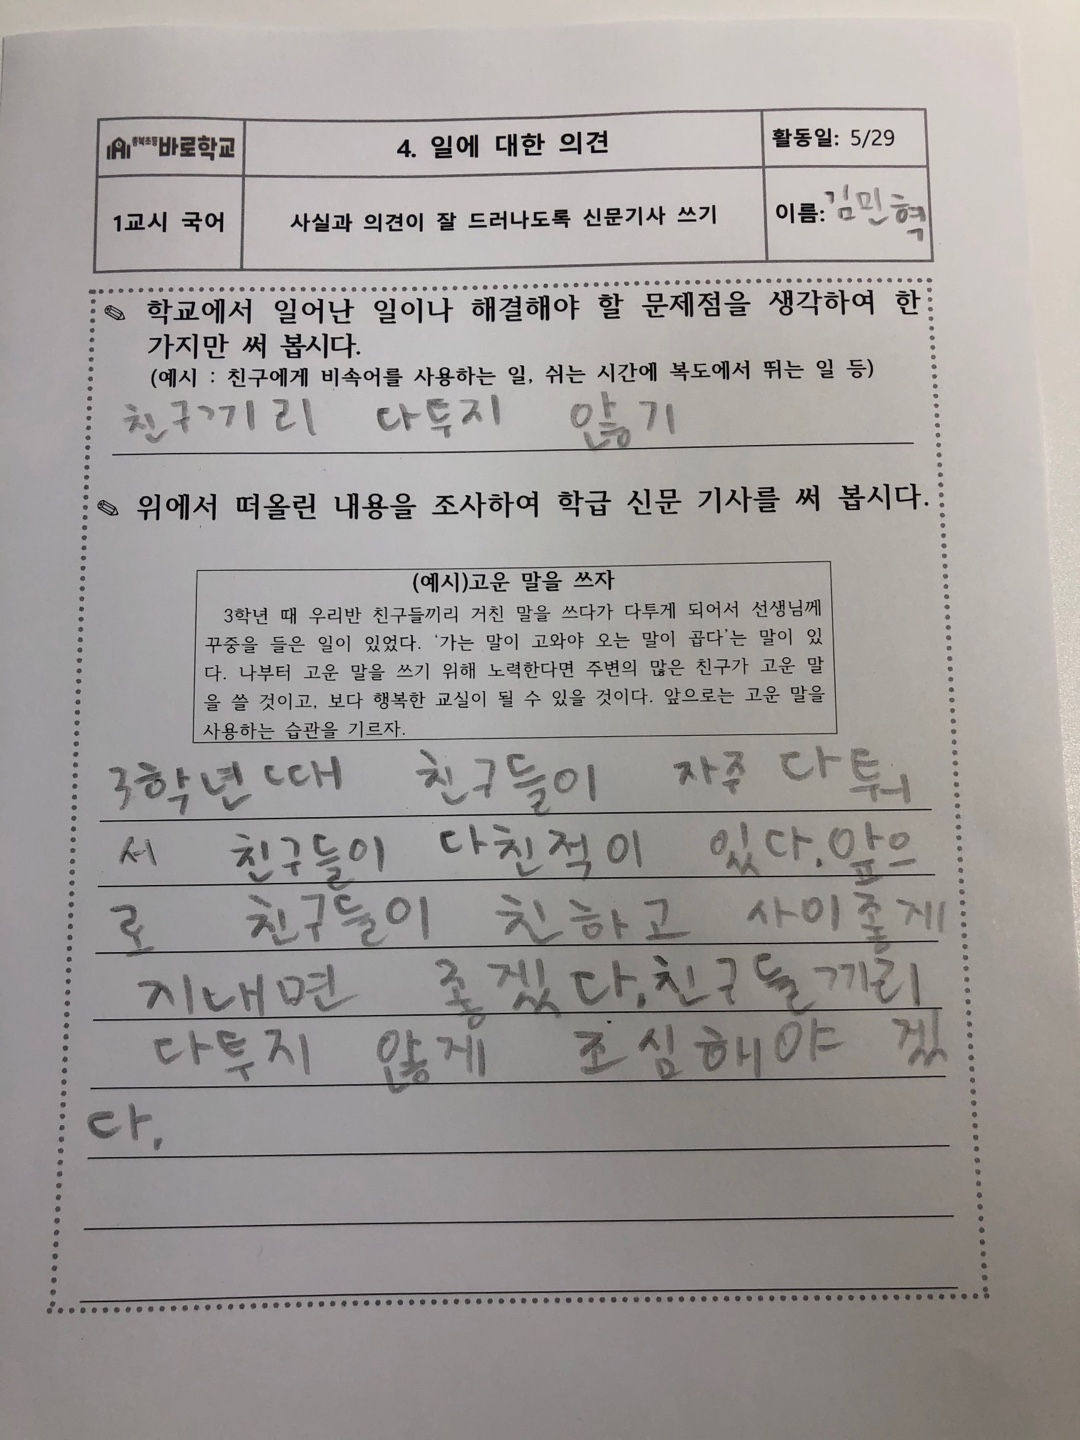 충북초등 바로학교
4. 일에 대한 의견
활동일: 5/29
1교시 국어
사실과 의견이 잘 드러나도록 신문기사 쓰기
이름: 김민혁
✎ 학교에서 일어난 일이나 해결해야 할 문제점을 생각하여 한
가지만 써 봅시다.
(예시 : 친구에게 비속어를 사용하는 일, 쉬는 시간에 복도에서 뛰는 일 등)
친구끼리 다투지 않기
✎ 위에서 떠올린 내용을 조사하여 학급 신문 기사를 써 봅시다.
(예시)고운 말을 쓰자
3학년 때 우리반 친구들끼리 거친 말을 쓰다가 다투게 되어서 선생님께
꾸중을 들은 일이 있었다. ‘가는 말이 고와야 오는 말이 곱다’는 말이 있
다. 나부터 고운 말을 쓰기 위해 노력한다면 주변의 많은 친구가 고운 말
을 쓸 것이고, 보다 행복한 교실이 될 수 있을 것이다. 앞으로는 고운 말을
사용하는 습관을 기르자.
3학년때 친구들이 자주 다투ㅓ
서 친구들이 다친적이 있다. 앞으
로 친구들이 친하고 사이좋게
지내면 좋겠다. 친구들끼리
다투지 않게 조심해야 겠
다.